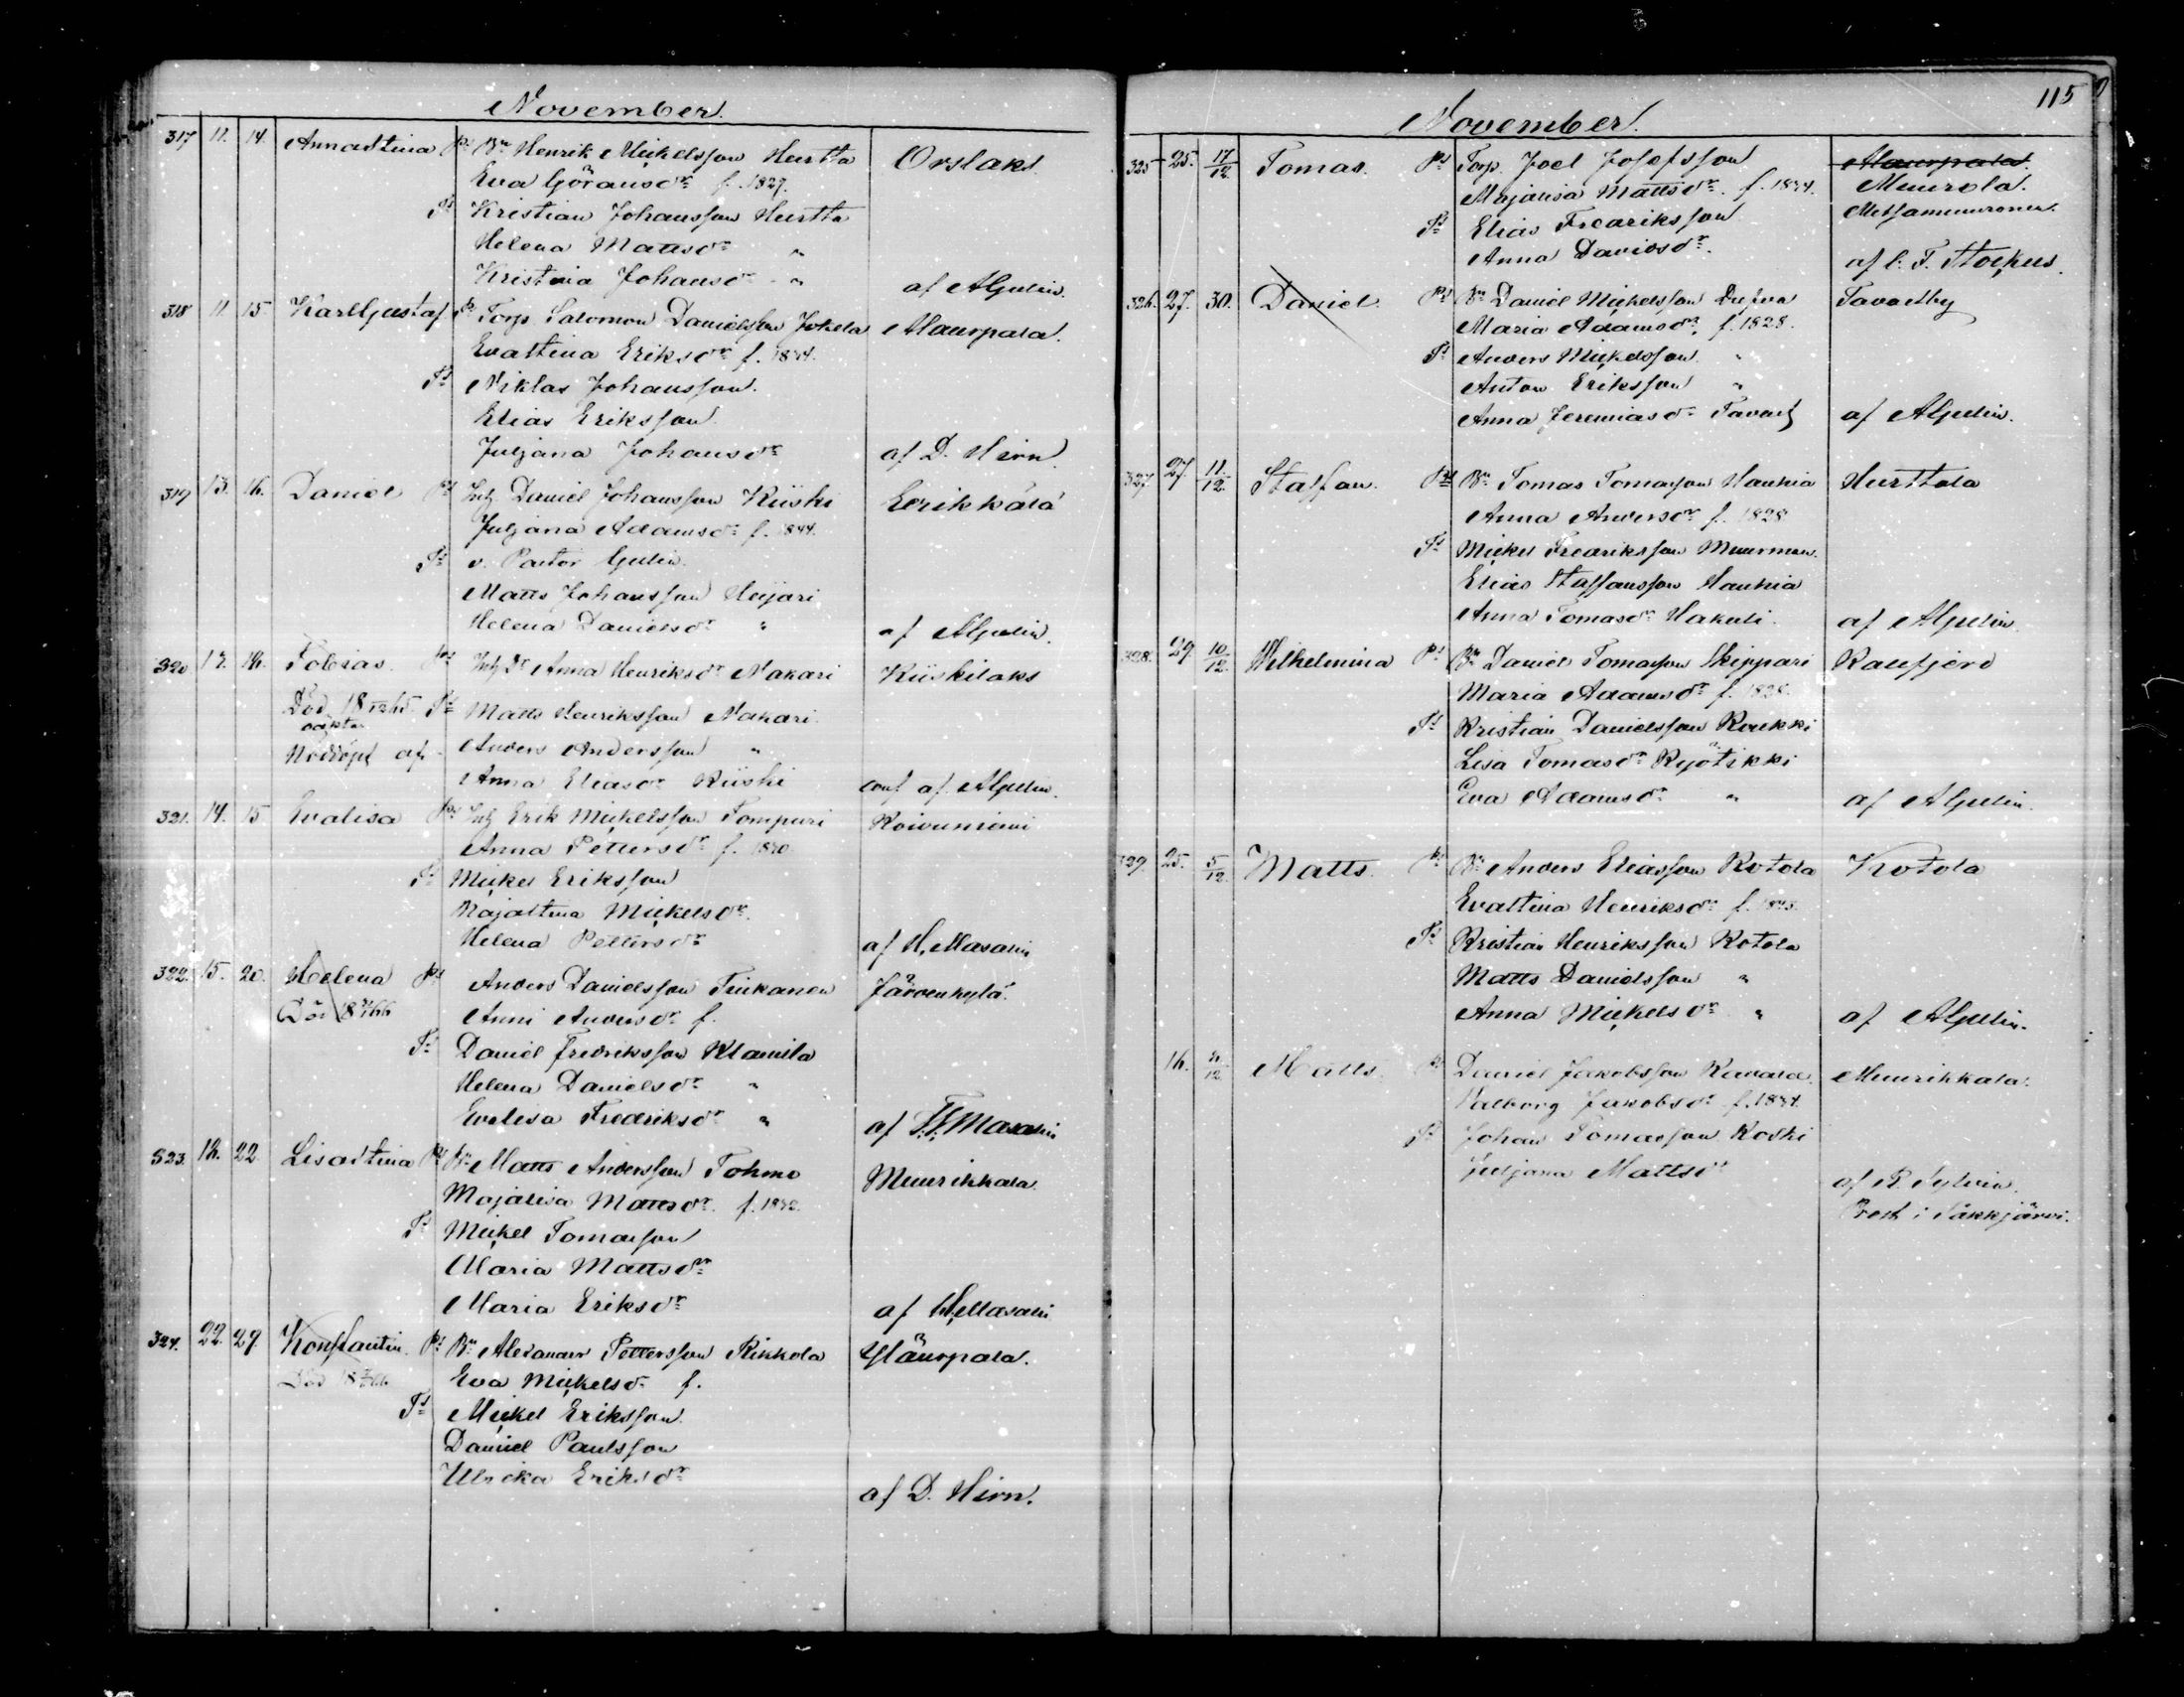 November.
317 11. 14. Annastina Ps Bn Henrik Mickelsson Hurtta Orslaks
Eva Göransdr f. 1827.
Ts Kristian Johansson Hurtta
Helena Mattsdr "
Kristina Johansdr " af AGulin.
318 11 15 Karl Gustaf Ps Torp. Salomon Danielsson Jokela Alaurpala.
Evastina Eriksdr f. 1844.
Ts Niklas Johansson.
Elias Eriksson
Juljana Johansdr af D. Hirn.
319 13. 16. Daniel Ps Inh Daniel Johansson Kiiski Eerikkälä
Juljana Adamsdr f. 1844.
Ts v. Pastor Gulin.
Matts Johansson Heijari
Helena Danielsdr " af AGulin.
320 12. 16. Tobias. Ps Inh Dr Anna Henriksdr Nakari Kiiskilaks
Död 18 65. Ts Matts Henriksson Nakari.
Nöddöpt af Anders Andersson "
Anna Eliasdr Kiiski conf af AGulin.
321. 14. 15 Evalisa Ps Inh Erik Mickelsson Tompuri Koivuniemi
Anna Pettersdr f. 1840
Ts Mickel Eriksson
Kajastina Mickelsdr.
Helena Pettersdr af H. Masalin
322. 15. 20. Helena Ps Anders Danielsson Tiukanen Järvenkylä.
Död 18 66 Anni Andersdr f.
Ts Daniel Fredriksson Klamila
Helena Danielsdr "
Evalisa Fredriksdr " af H. Masalin
323. 16. 22. Lisastina Ps Bn Matts Andersson Tohmo Muurikkala.
Majalisa Mattsdr. f. 1842.
Ts Mickel Tomasson
Maria Mattsdr
Maria Eriksdr af H. Masalin
324. 22. 29 Konstantin. Ps Bn Alexander Pettersson Rikkola Yläurpala.
Död 18 66. Eva Mickelsdr f.
Ts Mickel Eriksson.
Daniel Paulsson
Ulrika Eriksdr
af D. Hirn.
115
November.
325 25. 17/12. Tomas. Ps Torp. Joel Josefsson Alaurpala.
Majalisa Mattsdr. f. 1834. Muurola.
Ts Elias Fredriksson Metsämuuronen.
Anna Davidsdr. af C. F. Stockus.
326. 27. 30. Daniel Ps Bn Daniel Mickelsson Tavastby
Maria Adamsdr, f. 1828.
Ts Anders Mickelsson "
Anton Eriksson "
Anna Jeremiasdr Tavast af AGulin.
327 27. 11/12. Staffan. Ps Bn Tomas Tomasson Haukia Hurttala
Anna Andersdr f. 1828
Ts Mickel Fredriksson Muurman.
Elias Staffansson Haukia
Anna Tomasdr Hakuli. af AGulin
328. 29 10/12. Wilhelmina Ps Bn Daniel Tomasson Skippari Ravfjerd
Maria Adamsdr f. 1828.
Ts Kristian Danielsson Raukki
Lisa Tomasdr Ryötikki
Eva Adamsdr " af AGulin.
329. 25. 5/12. Matts. Ps Bn Anders Eliasson Kotola Kotola
Evastina Henriksdr f. 1843.
Ts Kristian Henriksson Kotola
Matts Danielsson "
Anna Mickelsdr " af AGulin.
16. /12. Matts. Ps Daniel Jakobsson Kavala. Muurikkala.
Valborg Jakobsdr f. 1834.
Ts Johan Tomasson Koski
Juljana Mattsdr
af R. Sylvin.
Prest i Säkkjärvi.